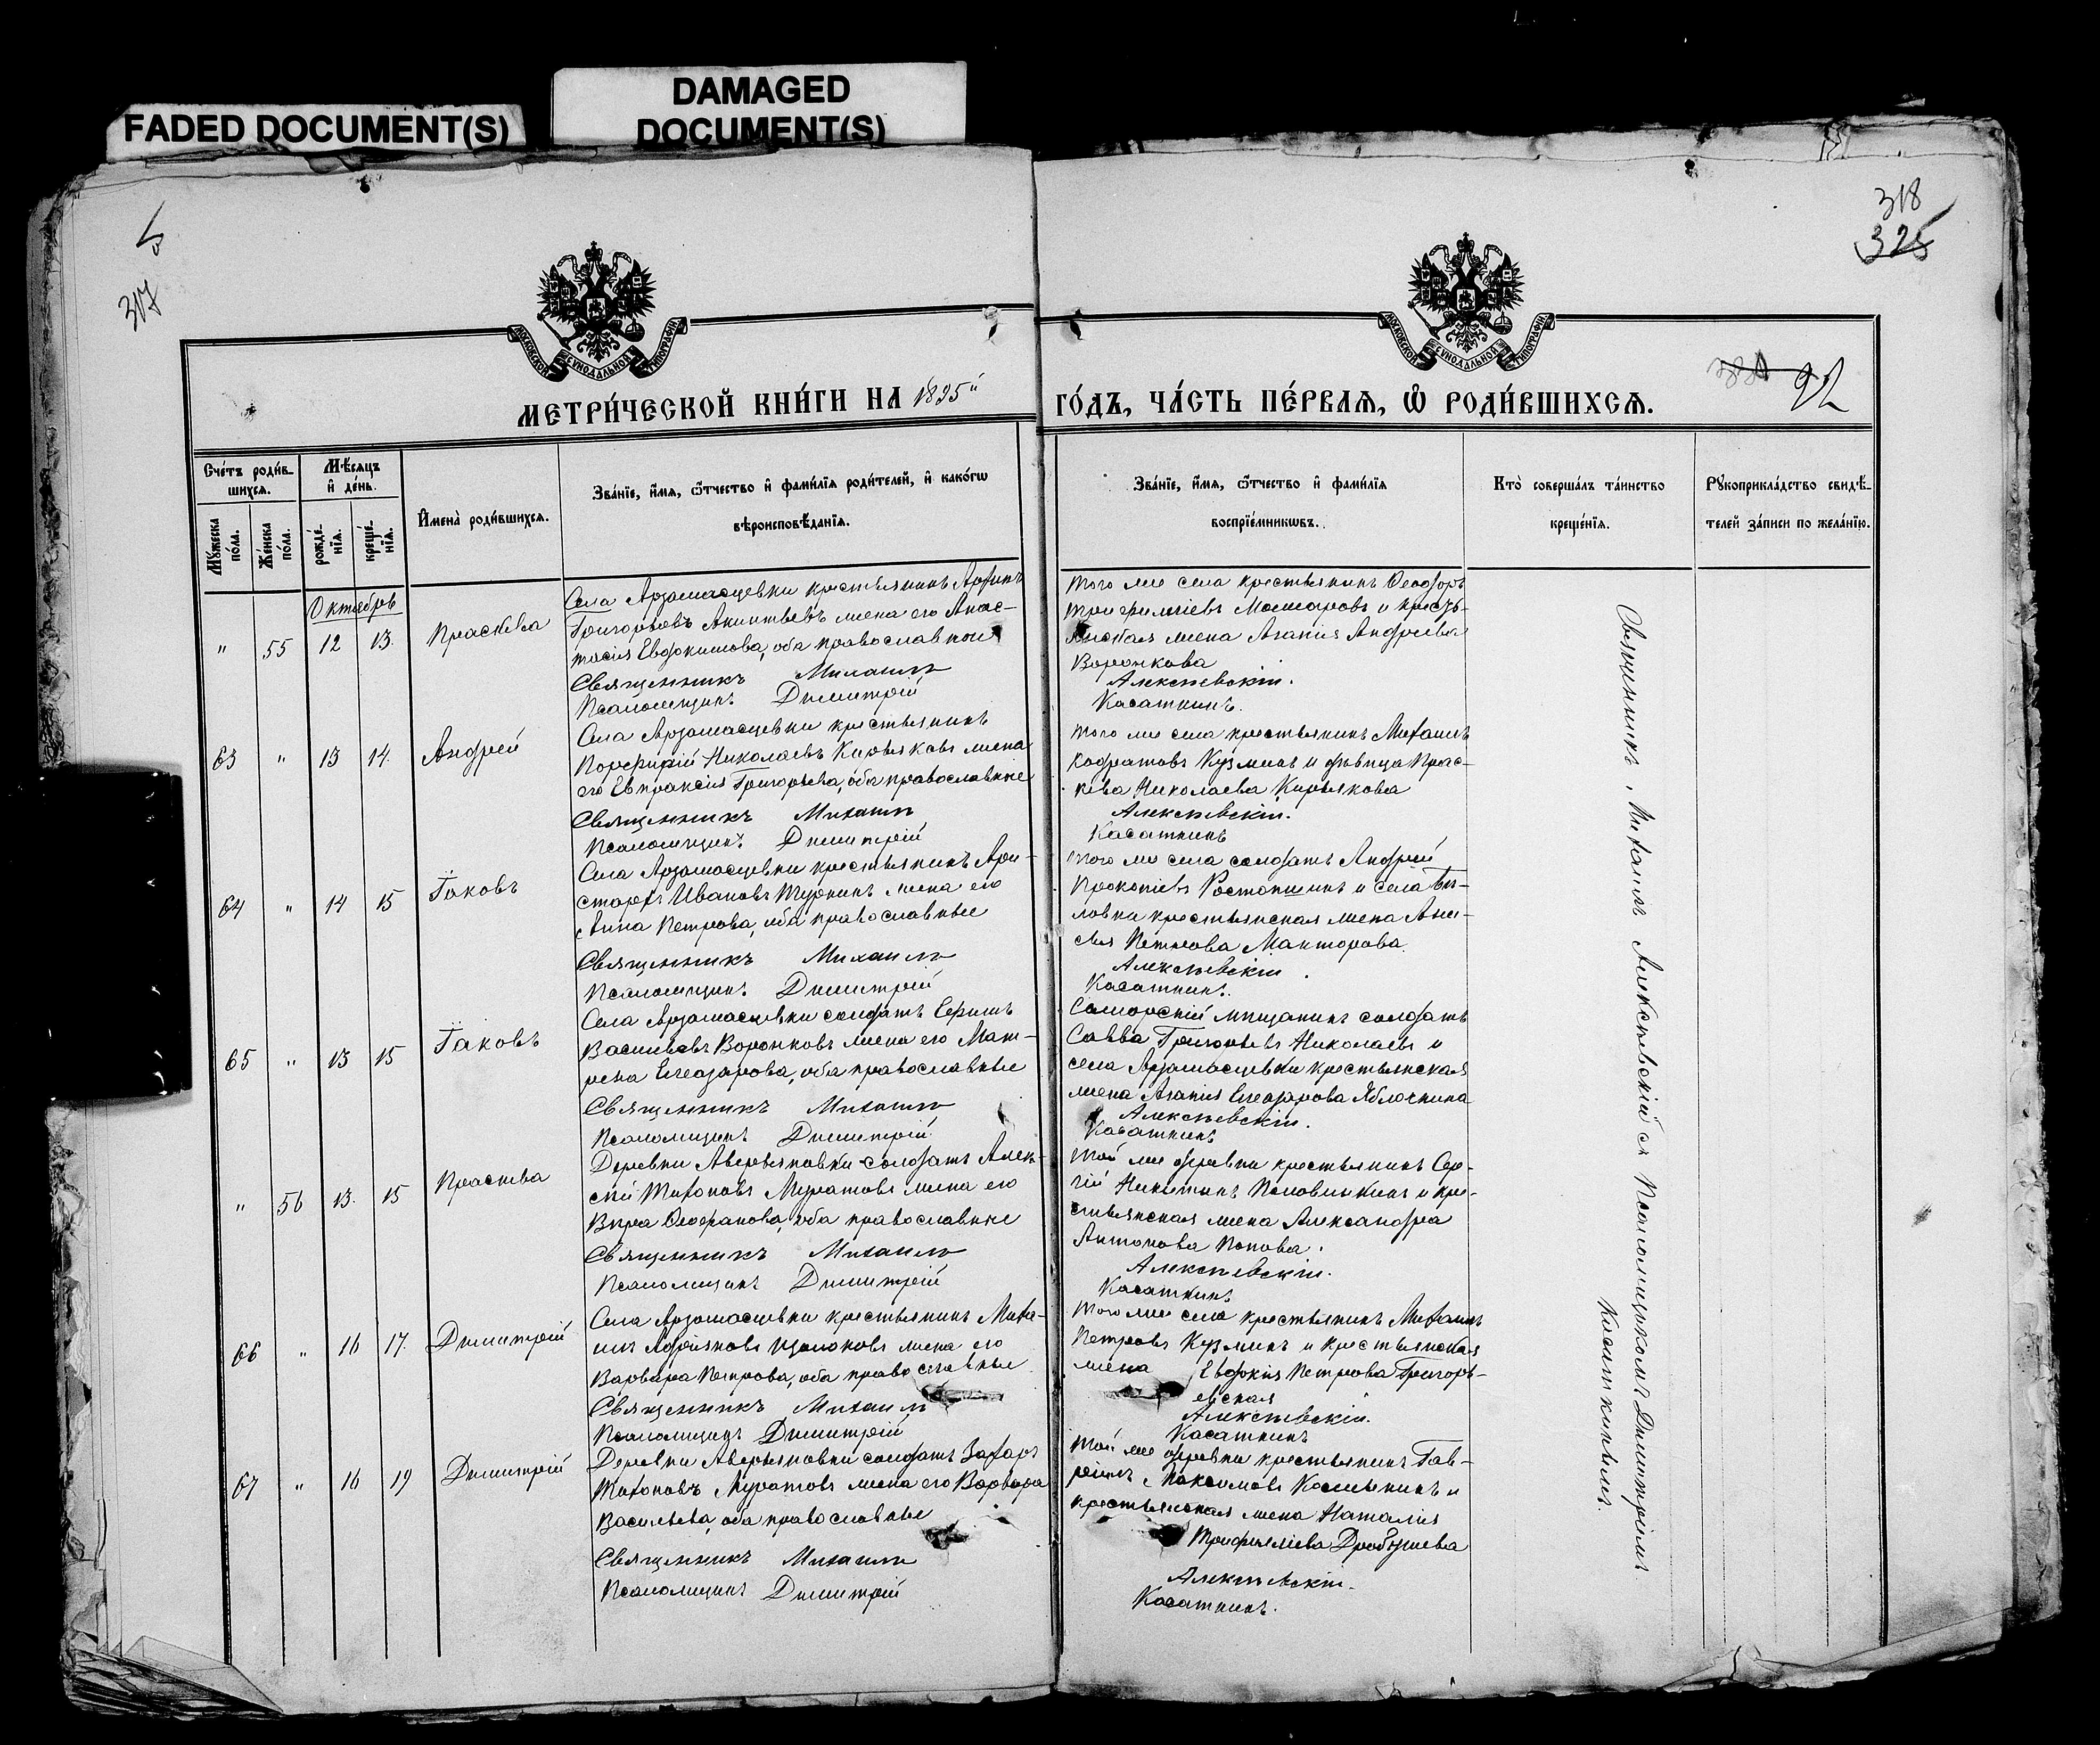 FADED DOCUMENT(S)
DAMAGED
DOCUMENT(S)
317
318
325
92
МОСКОВСКОЙ СѴНОДАЛЬНОЙ ТИПОГРАФІИ
МОСКОВСКОЙ СѴНОДАЛЬНОЙ ТИПОГРАФІИ
МЕТРИ́ЧЕСКОЙ КНИ́ГИ НА 1895й
ГО́ДЪ, ЧА́СТЬ ПЕ́РВАЯ, Ѡ҆ РОДИ́ВШИХСЯ.
Сче́тъ роди́в-
шихся.
Мѣ́сяцъ
и҆ де́нь.
Мꙋ́жеска
по́ла.
Же́нска
по́ла.
рожде́-
нїя.
креще́-
нїя.
И҆мена̀ роди́вшихся.
Зва́нїе, и҆́мя, ѻ҆́тчество и҆ фами́лїя роди́телей, и҆ како́гѡ
вѣроисповѣ́данїя.
Зва́нїе, и҆́мя, ѻ҆́тчество и҆ фами́лїя
воспрїе́мникѡвъ.
Кто̀ соверша́лъ та́инство
креще́нїя.
Рꙋкоприкла́дство свидѣ́-
телей за́писи по жела́нїю.
Октябрь
" 55 12 13. Праскева
Села Арзамасцевки крестьянинъ
Григорьевъ Акинтьевъ жена его Анас-
тасія Евдокимова, оба православные
Священникъ Михаилъ
Псаломщикъ Димитрій
Того же села крестьянинъ Ѳеодоръ
Трифиліевъ и кресть-
янская жена Агапія Андреева
Воронкова
Алексѣевскій.
Касаткинъ.
63 " 13 14. Андрей
Села Арзамасцевки крестьянинъ
Порфирій Николаевъ Кирьяковъ жена
его Евпраксія Григорьева, оба православные
Священникъ Михаилъ
Псаломщикъ Димитрій
Того же села крестьянинъ Михаилъ
Кодратовъ Кузминъ и дѣвица Прас-
кева Николаева Кирьякова
Алексѣевскій.
Касаткинъ
64 " 14 15 Іаковъ
Села Арзамасцевки крестьянинъ Ари-
стархъ Ивановъ Тюринъ жена его
Анна Петрова, оба православные
Священникъ Михаилъ
Псаломщикъ Димитрій
Того же села солдатъ Андрей
Прокопіевъ Ростопшинъ и села Бѣ-
ловки крестьянская жена Ани-
сія Петрова Манторова.
Алексѣевскій.
Касаткинъ.
65 " 13 15 Іаковъ
Села Арзамасцевки солдатъ Ефимъ
Васильевъ Воронковъ жена его Мат-
рена Елеазарова, оба православные
Священникъ Михаилъ
Псаломщикъ Димитрій
Самарскій мѣщанинъ солдатъ
Савва Григорьевъ Николаевъ и
села Арзамасцевки крестьянская
жена Агапія Елеазарова Яблочкина
Алексѣевскій.
Касаткинъ
" 56 13. 15 Праскева
Деревни Аверьяновки солдатъ Алек-
сѣй Тихоновъ Муратовъ жена его
Вѣра Ѳеофанова, оба православные
Священникъ Михаилъ
Псаломщикъ Димитрій
Той же деревни крестьянинъ Сер-
гій Никитинъ Половинкинъ и кре-
стьянская жена Александра
Антонова Попова.
Алексѣевскій.
Касаткинъ
66 " 16 17. Димитрій
Села Арзамасцевки крестьянинъ Миха-
илъ Адріановъ Щолоковъ жена его
Варвара Петрова, оба православные
Священникъ Михаилъ
Псаломщикъ Димитрій
Того же села крестьянинъ Михаилъ
Петровъ Кузминъ и крестьянская
жена Евдокія Петрова Григорь-
евская
Алексѣевскій.
Касаткинъ
67 " 16 19 Димитрій
Деревни Аверьяновки солдатъ Захаръ
Тихоновъ Муратовъ жена его Варвара
Васильева, оба православные
Священникъ Михаилъ
Псаломщикъ Димитрій
Той же деревни крестьянинъ Гав-
ріилъ Максимовъ Космынинъ и
крестьянская жена Наталія
Трифиліева Дробышева
Алексѣевскій.
Касаткинъ.
Священникъ Михаилъ Алексѣевскій съ Псаломщикомъ Димитріемъ
Касаткинымъ.